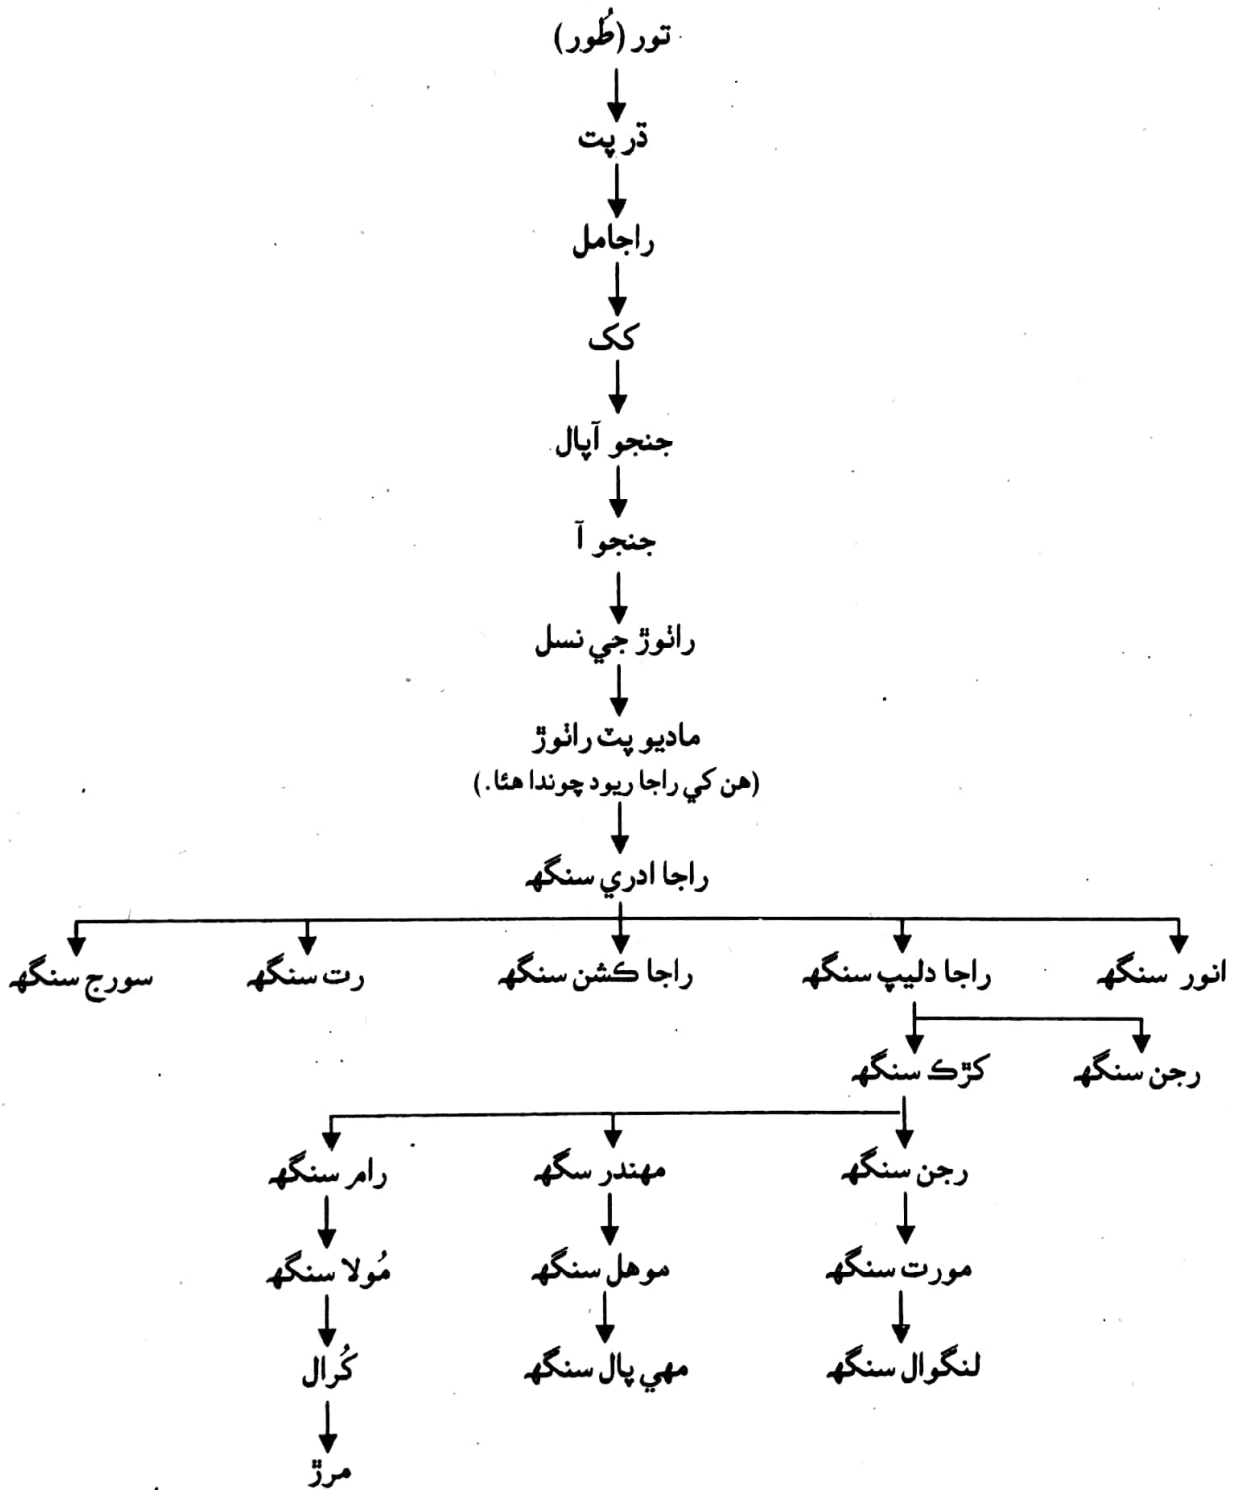 تور (طُور)
ڌرپت
راجامل
کک
جنجو آپال
جنجو آ
راٺوڙ جي نسل
ماديو پٽ راٺوڙ
(هن کي راجا ريوڊ چوندا هئا.)
راجا ادري سنگھ
انور سنگھ راجا دليپ سنگھ راجا ڪشن سنگھ رت سنگھ سورج سنگھ
رجن سنگھ کڙڪ سنگھ
رجن سنگھ مهندر سگھ رامر سنگھ
مورت سنگھ موهل سنگھ مُولا سنگھ
لنگوال سنگھ مهي پال سنگھ کُرال
مرڙ